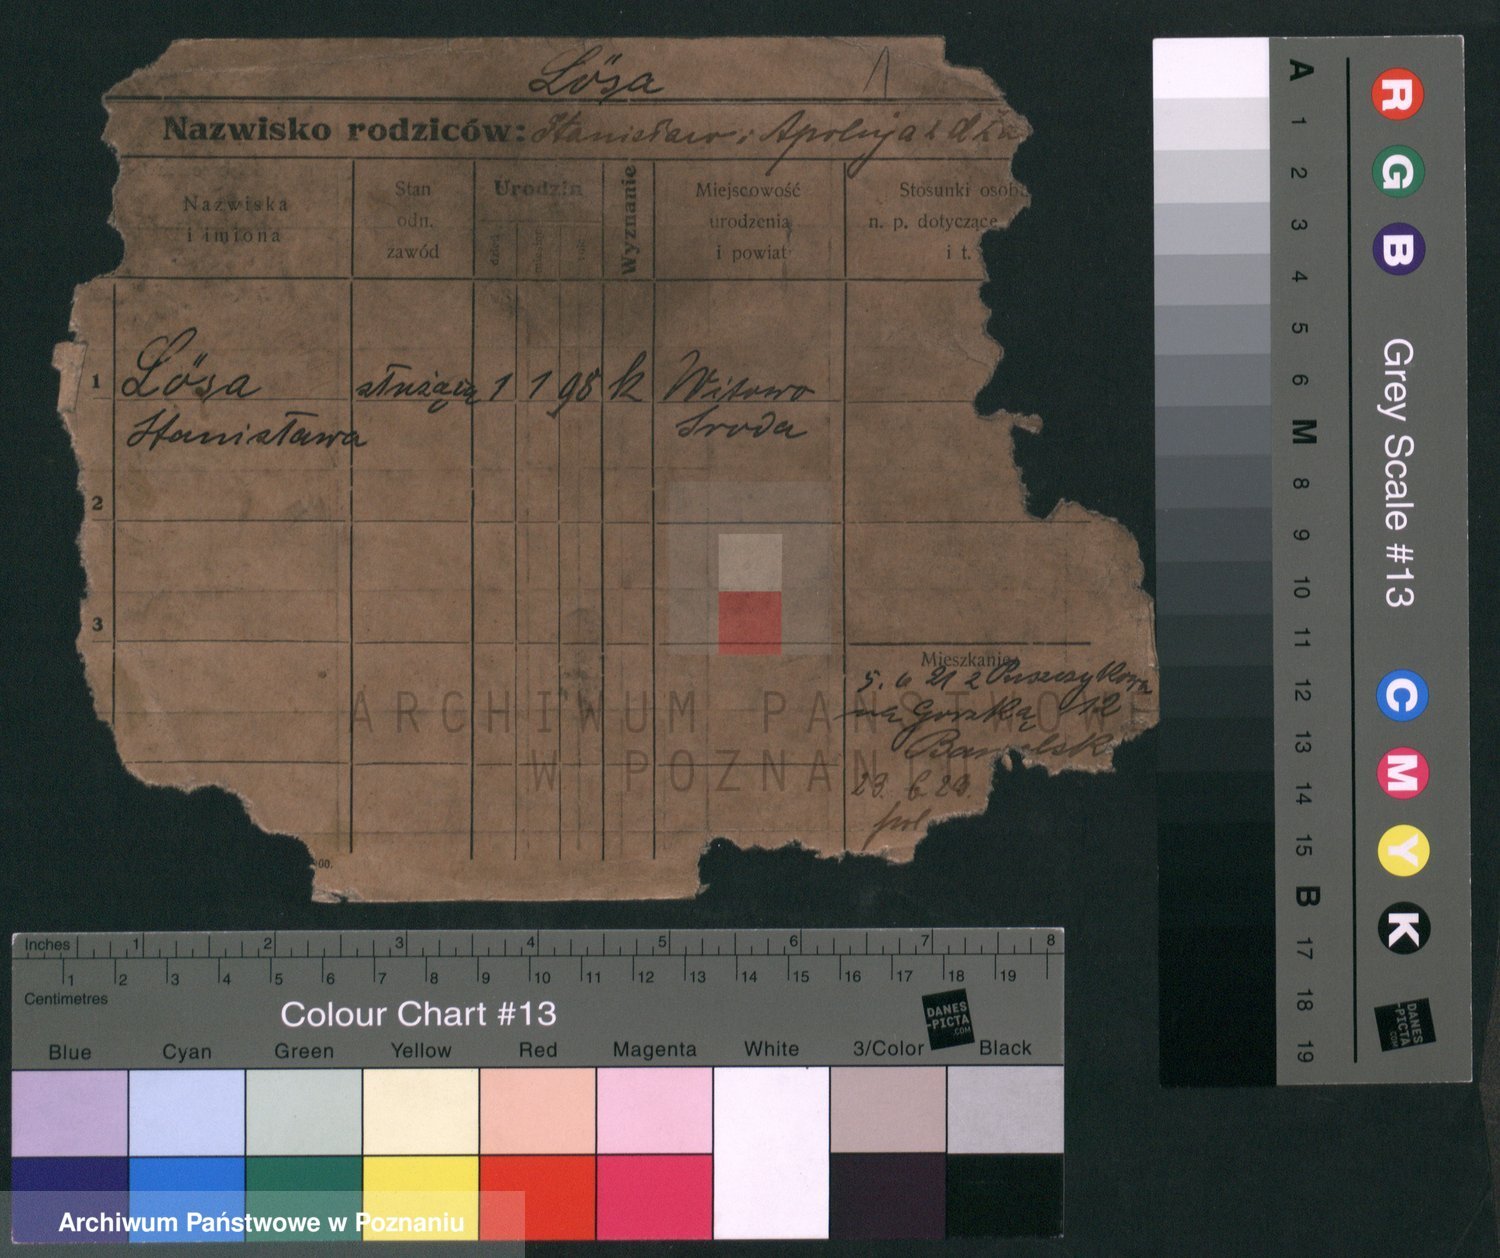 Lösa
Nazwisko rodziców: Stanisław i Apolonja z d
Nazwiska
i imiona
Stan
odn.
zawód
Urodzin
dzień
miesiąc
rok
Wyznanie
Miejscowość
urodzenia
i powiat
Stosunki osob
n. p. dotyczące
i t.
1
Lösa
służąca
1 1 98
k
Witowo
Stanisława
Środa
2
3
Mieszkanie
5. 6 21 z Puszczykowa
na Górską 12
23. 6 29.
00.
ARCHIWUM PAŃSTWOWE
W POZNANIU
A 1 2 3 4 5 6 M 8 9 10 11 12 13 14 15 B 17 18 19
R G B
Grey Scale #13
C M Y K
DANES
-PICTA
.COM
Inches 1 2 3 4 5 6 7 8
1 2 3 4 5 6 7 8 9 10 11 12 13 14 15 16 17 18 19
Centimetres
Colour Chart #13
DANES
-PICTA
.COM
Blue Cyan Green Yellow Red Magenta White 3/Color Black
Archiwum Państwowe w Poznaniu